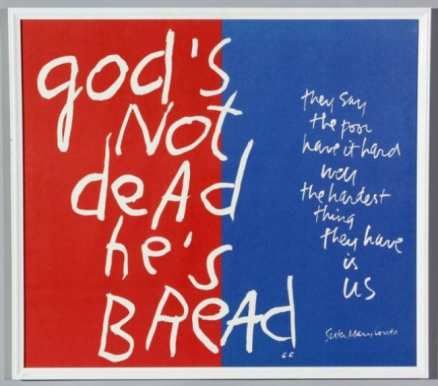 god's
Not
deAd
he's
BReAd
they say
the poor
have it hard
well
the hardest
thing
they have
is
us
Sister Mary Corita